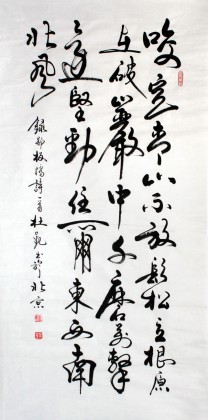 咬定青山不放鬆立根原
在破巖中千磨萬擊
還堅勁任爾東西南
北風
錄鄭板橋詩一首杜書於北京